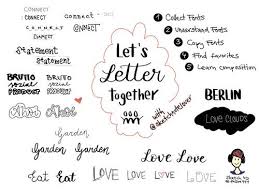 CONNECT
CONNECT
CONNECT
CONNECT
Statement
Statement
BRUTTO
social
PRODUCT
BRUTTO
social
PRODUCT
Garden
Garden
Garden
Garden
Eat Eat
Let's
Letter
together
with
1 Collect Fonts
2 Understand Fonts
3 Copy Fonts
4 Find favorites
5 Learn composition
BERLIN
LOVE CLOUDS
Love Love
LOVE LOVE Love Love